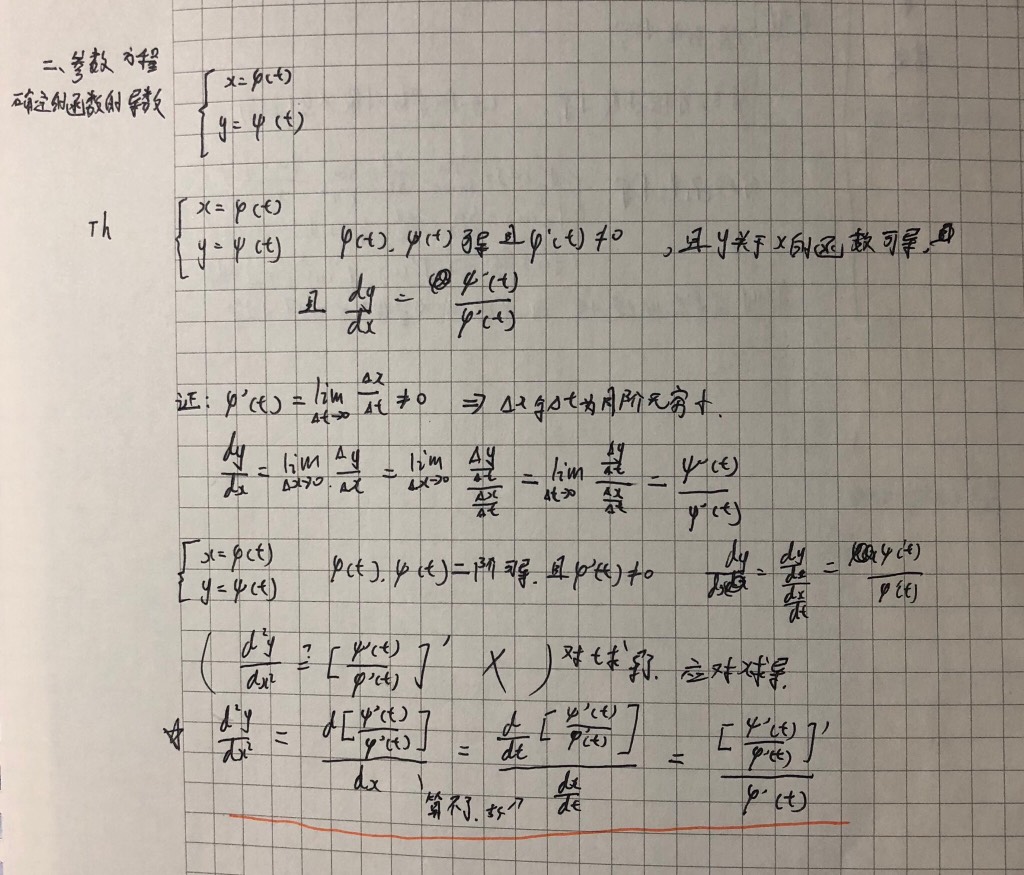 二、参数方程
确定的函数的导数
{ x=φ(t)
y=ψ(t)
Th { x=φ(t)
y=ψ(t) φ(t).ψ(t)可导且φ'(t)≠0 ,且y关于x的函数可导.且
且 dy/dx = ψ'(t)/φ'(t)
证: φ'(t) = lim Δt→0 Δx/Δt ≠0 ⇒ Δx与Δt为同阶无穷小.
dy/dx = lim Δx→0 Δy/Δx = lim Δx→0 (Δy/Δt)/(Δx/Δt) = lim Δt→0 (Δy/Δt)/(Δx/Δt) = ψ'(t)/φ'(t)
{ x=φ(t)
y=ψ(t) φ(t).ψ(t)二阶可导.且φ'(t)≠0 dy/dx = = ψ'(t)/φ'(t)
( d²y/dx² ?= [ψ'(t)/φ'(t)]' X ) 对t求导了. 应对x求导.
☆ d²y/dx² = d[ψ'(t)/φ'(t)]/dx = d/dt[ψ'(t)/φ'(t)]/(dx/dt) = [ψ'(t)/φ'(t)]'/φ'(t)
算不了.